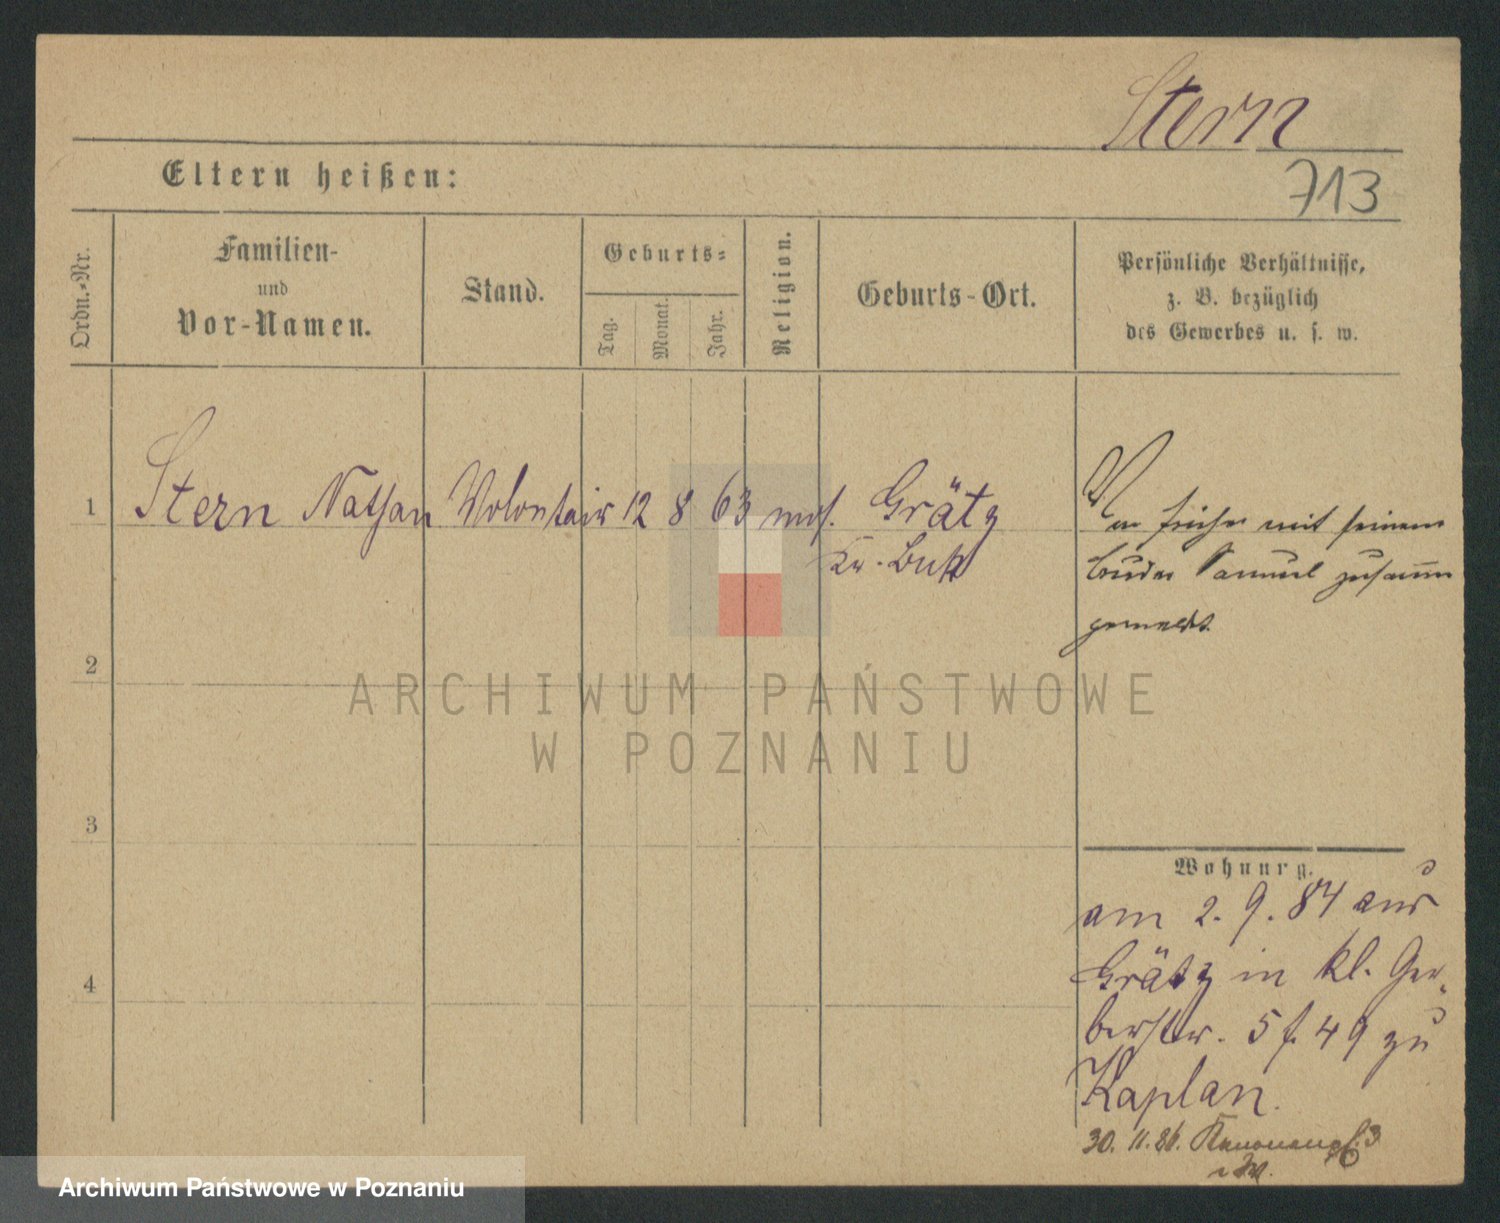 Stern
713
Eltern heißen:
Ordn.-Nr.
Familien-
und
Vor-Namen.
Stand.
Geburts-
Tag.
Monat.
Jahr.
Religion.
Geburts-Ort.
Persönliche Verhältnisse,
z. B. bezüglich
des Gewerbes u. s. w.
1
Stern Nathan Volontair 12 8 63 mos. Grätz
Kr. Buk
früher mit seinem
Bruder Samuel zusamm
gemeldet.
2
ARCHIWUM PAŃSTWOWE
W POZNANIU
3
Wohnung.
am 2. 9. 84 aus
Grätz in kl. Ger-
berstr. 5 f. 49 zu
Kaplan.
4
30. 11. 86.
Archiwum Państwowe w Poznaniu